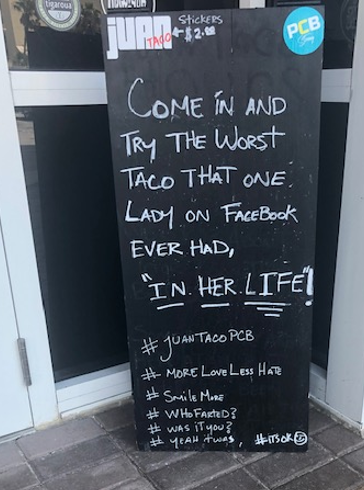 Tigaroua
JUAN
TACO
STICKERS
$2.00
PCB
COME IN AND
TRY THE WORST
TACO THAT ONE
LADY ON FACEBOOK
EVER HAD,
"IN HER LIFE"!
# JUANTACOPCB
# MORE LOVE LESS HATE
# SMILE MORE
# WHO FARTED?
# WAS IT YOU?
# YEAH IT WAS, #ITSOK